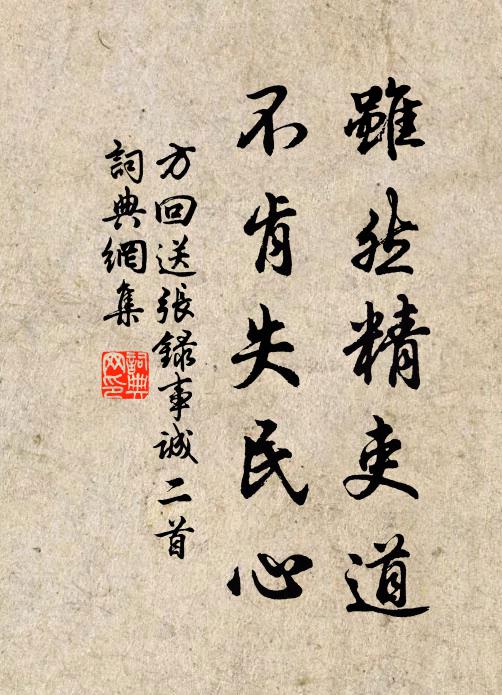 雖然精吏道
不肯失民心
方回送張録事誠二首
詞典網集
詞典
网印